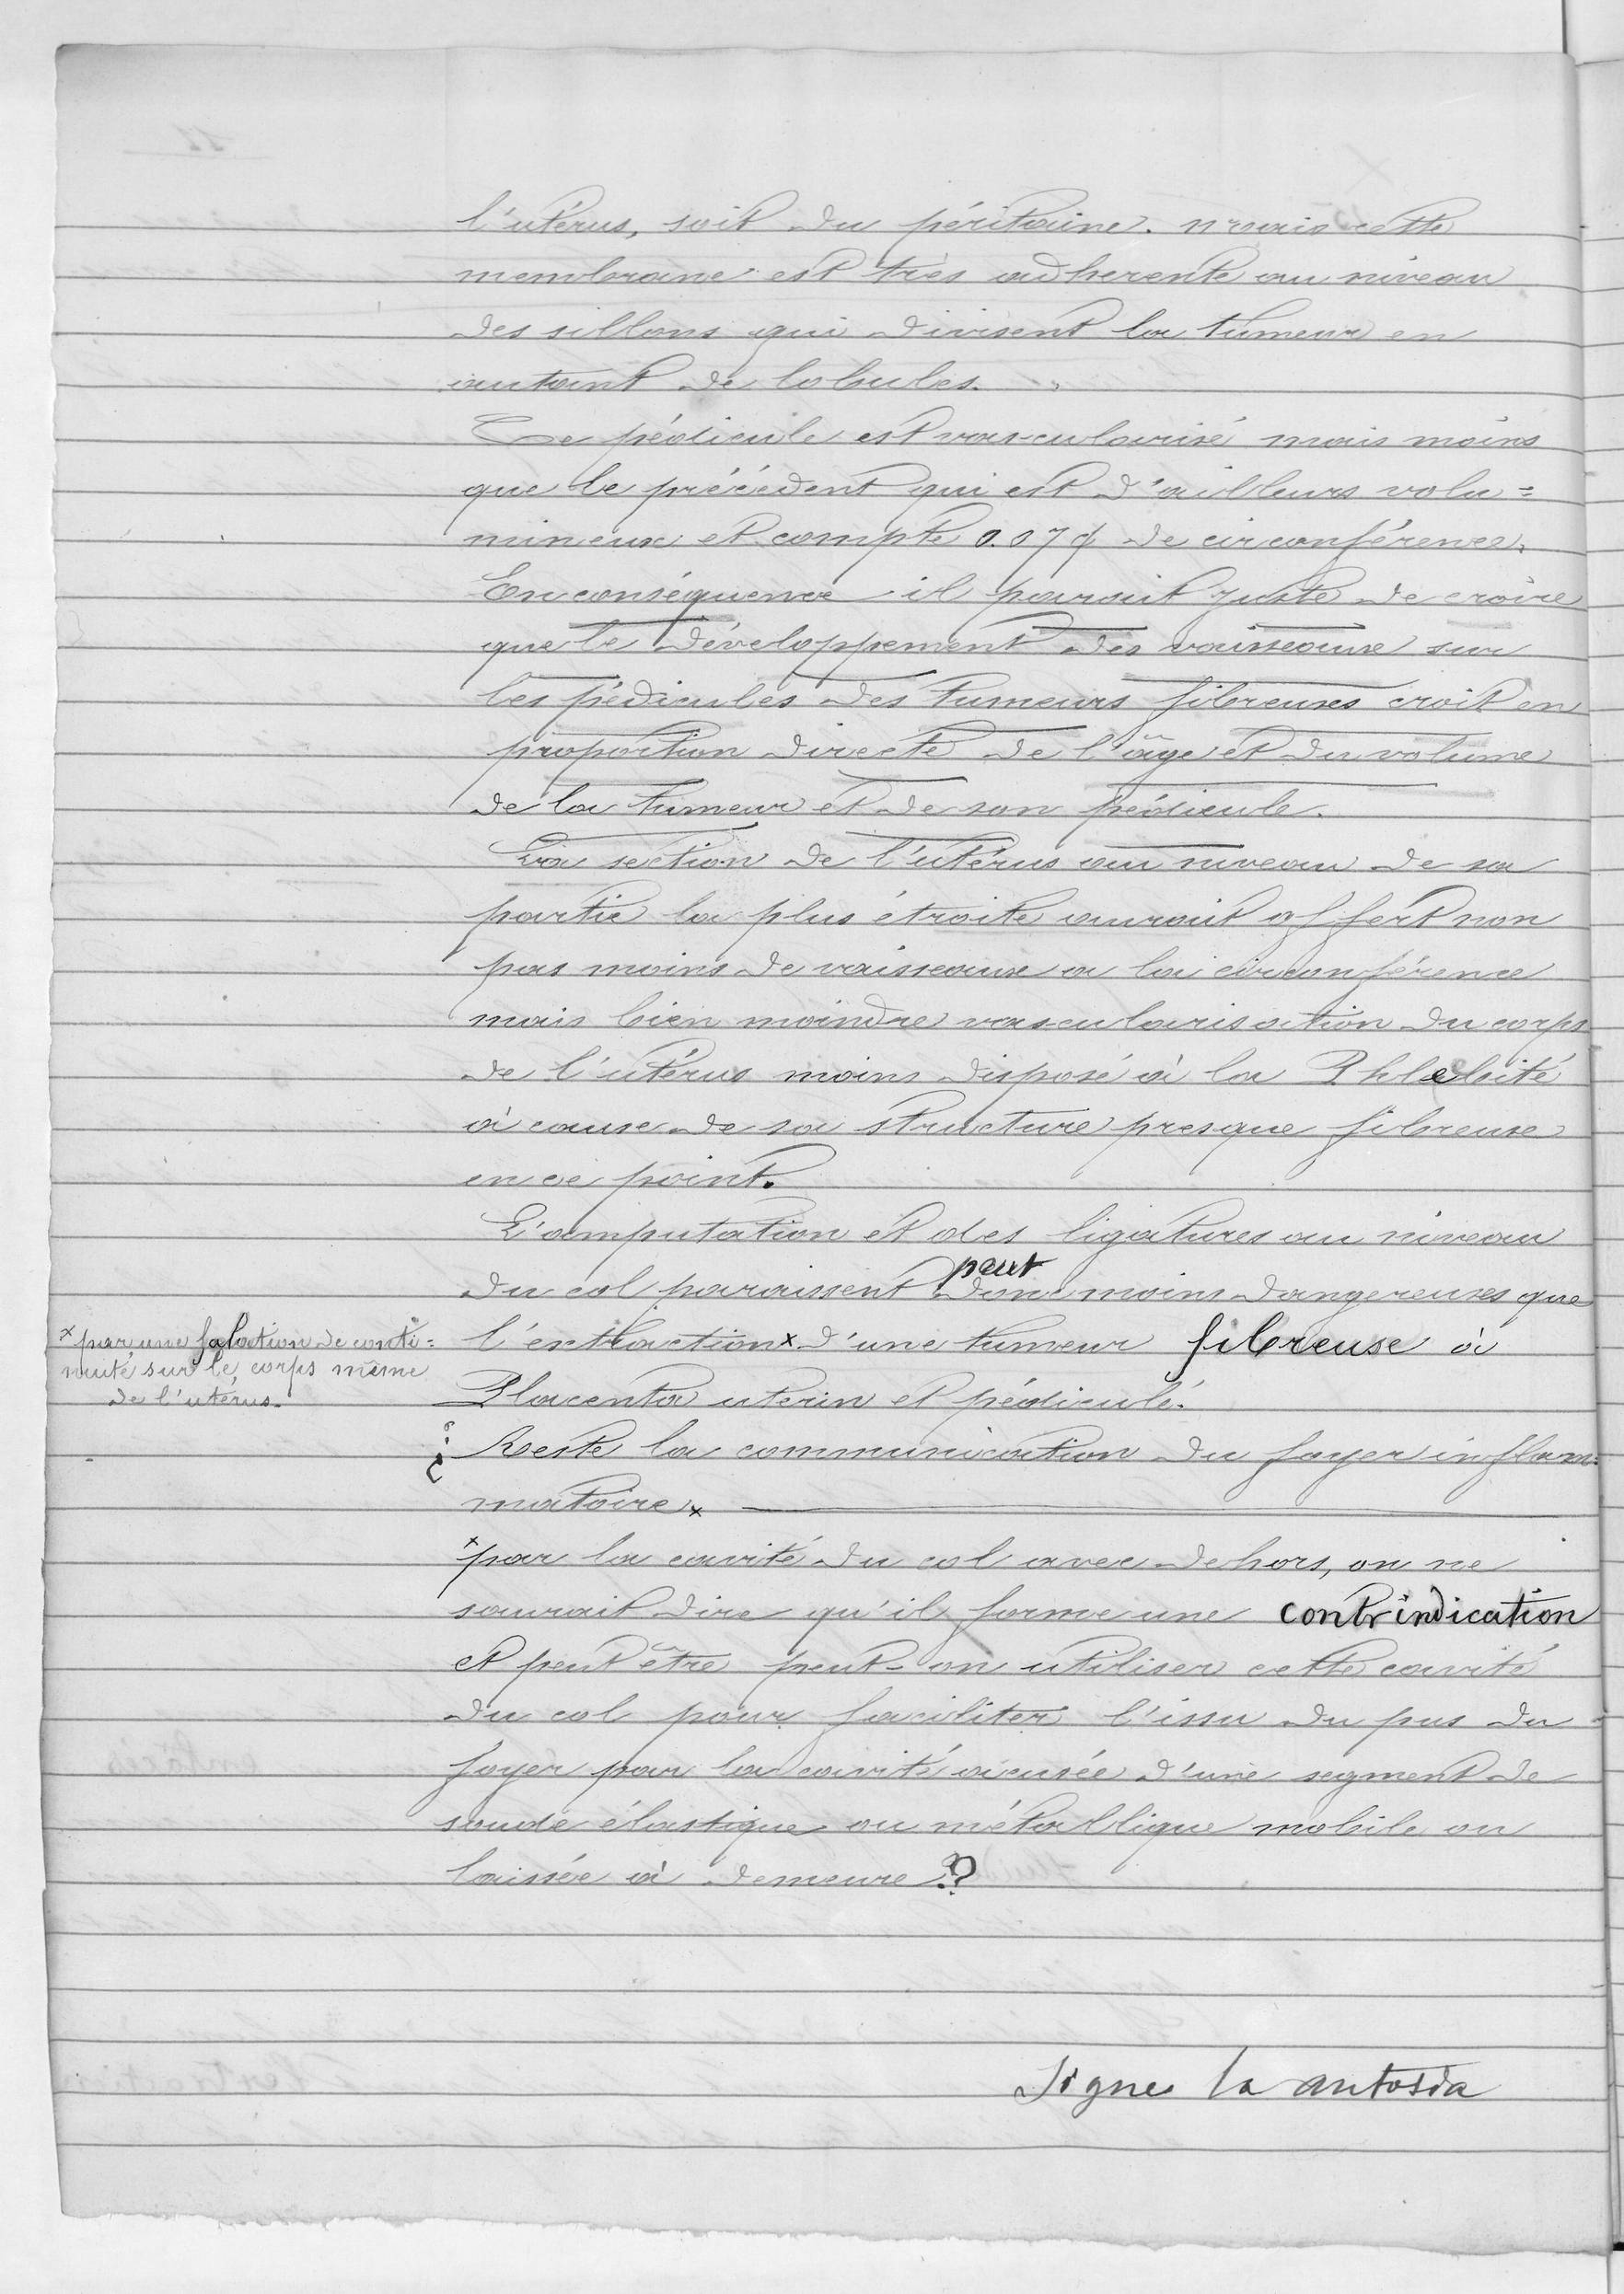 l'utérus, soit du péritoine. mais cette
membrane est très adherente au niveau
des sillons qui divisent la tumeur en
autant de lobules.
Ce pédicule est vascularisé mais moins
que le précédent qui est d'ailleurs volu=
mineux et compte 0.079 de circonférence,
En conséquence il parait juste de croire
que le développement des vaisseaux sur
les pédicules des tumeurs fibreuses croit en
proportion directe de l'âge et du volume
de la tumeur et de son pédicule.
La section de l'utérus au niveau de sa
partie la plus étroite aurait offert non
pas moins de vaisseaux a la circonférence
mais bien moindre vascularisation du corps
de l'utérus moins disposé à la Phlebité
à cause de sa structure presque fibreuse
en ce point.
L'amputation et des ligatures au niveau
du col paraissent peut donc moins dangereuses que
l'extraction x d'une tumeur fibreuse à
x par une solution de conti=
nuité sur le corps même
de l'utérus.
Placenta uterin et pédiculé.
Reste la communication du foyer inflam=
matoire x
x par la cavité du col avec dehors, on ne
saurait dire qu'il forme une contrindication
et peut être peut-on utiliser cette cavité
du col pour faciliter l'issu du pus du
foyer par la cavité d'une segment de
sonde élastique ou métallique mobile ou
laissée à demeure ??
Signe la antosia